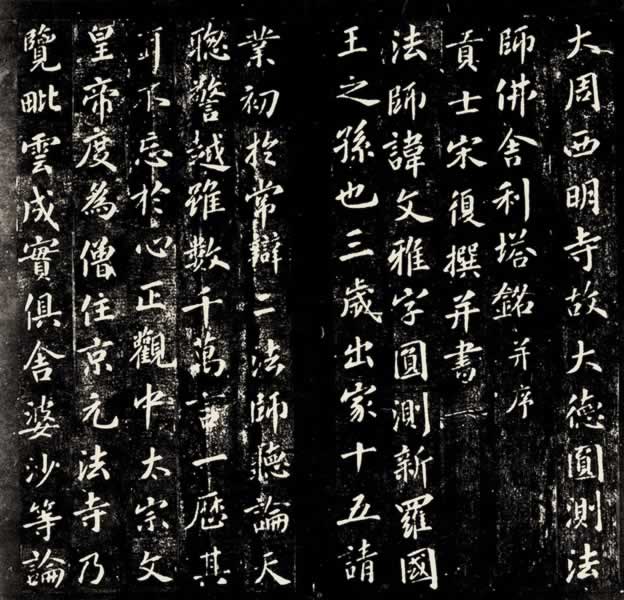 大周西明寺故大德圓測法
師佛舍利塔銘并序
貢士宋復撰并書
法師諱文雅字圓測新羅國
王之孫也三歲出家十五請
業初於常辯二法師聽論天
聰警越雖数千萬言一歷其
耳不忘於心正觀中太宗文
皇帝度為僧住京元法寺乃
覽毗雲成實俱舍婆沙等論